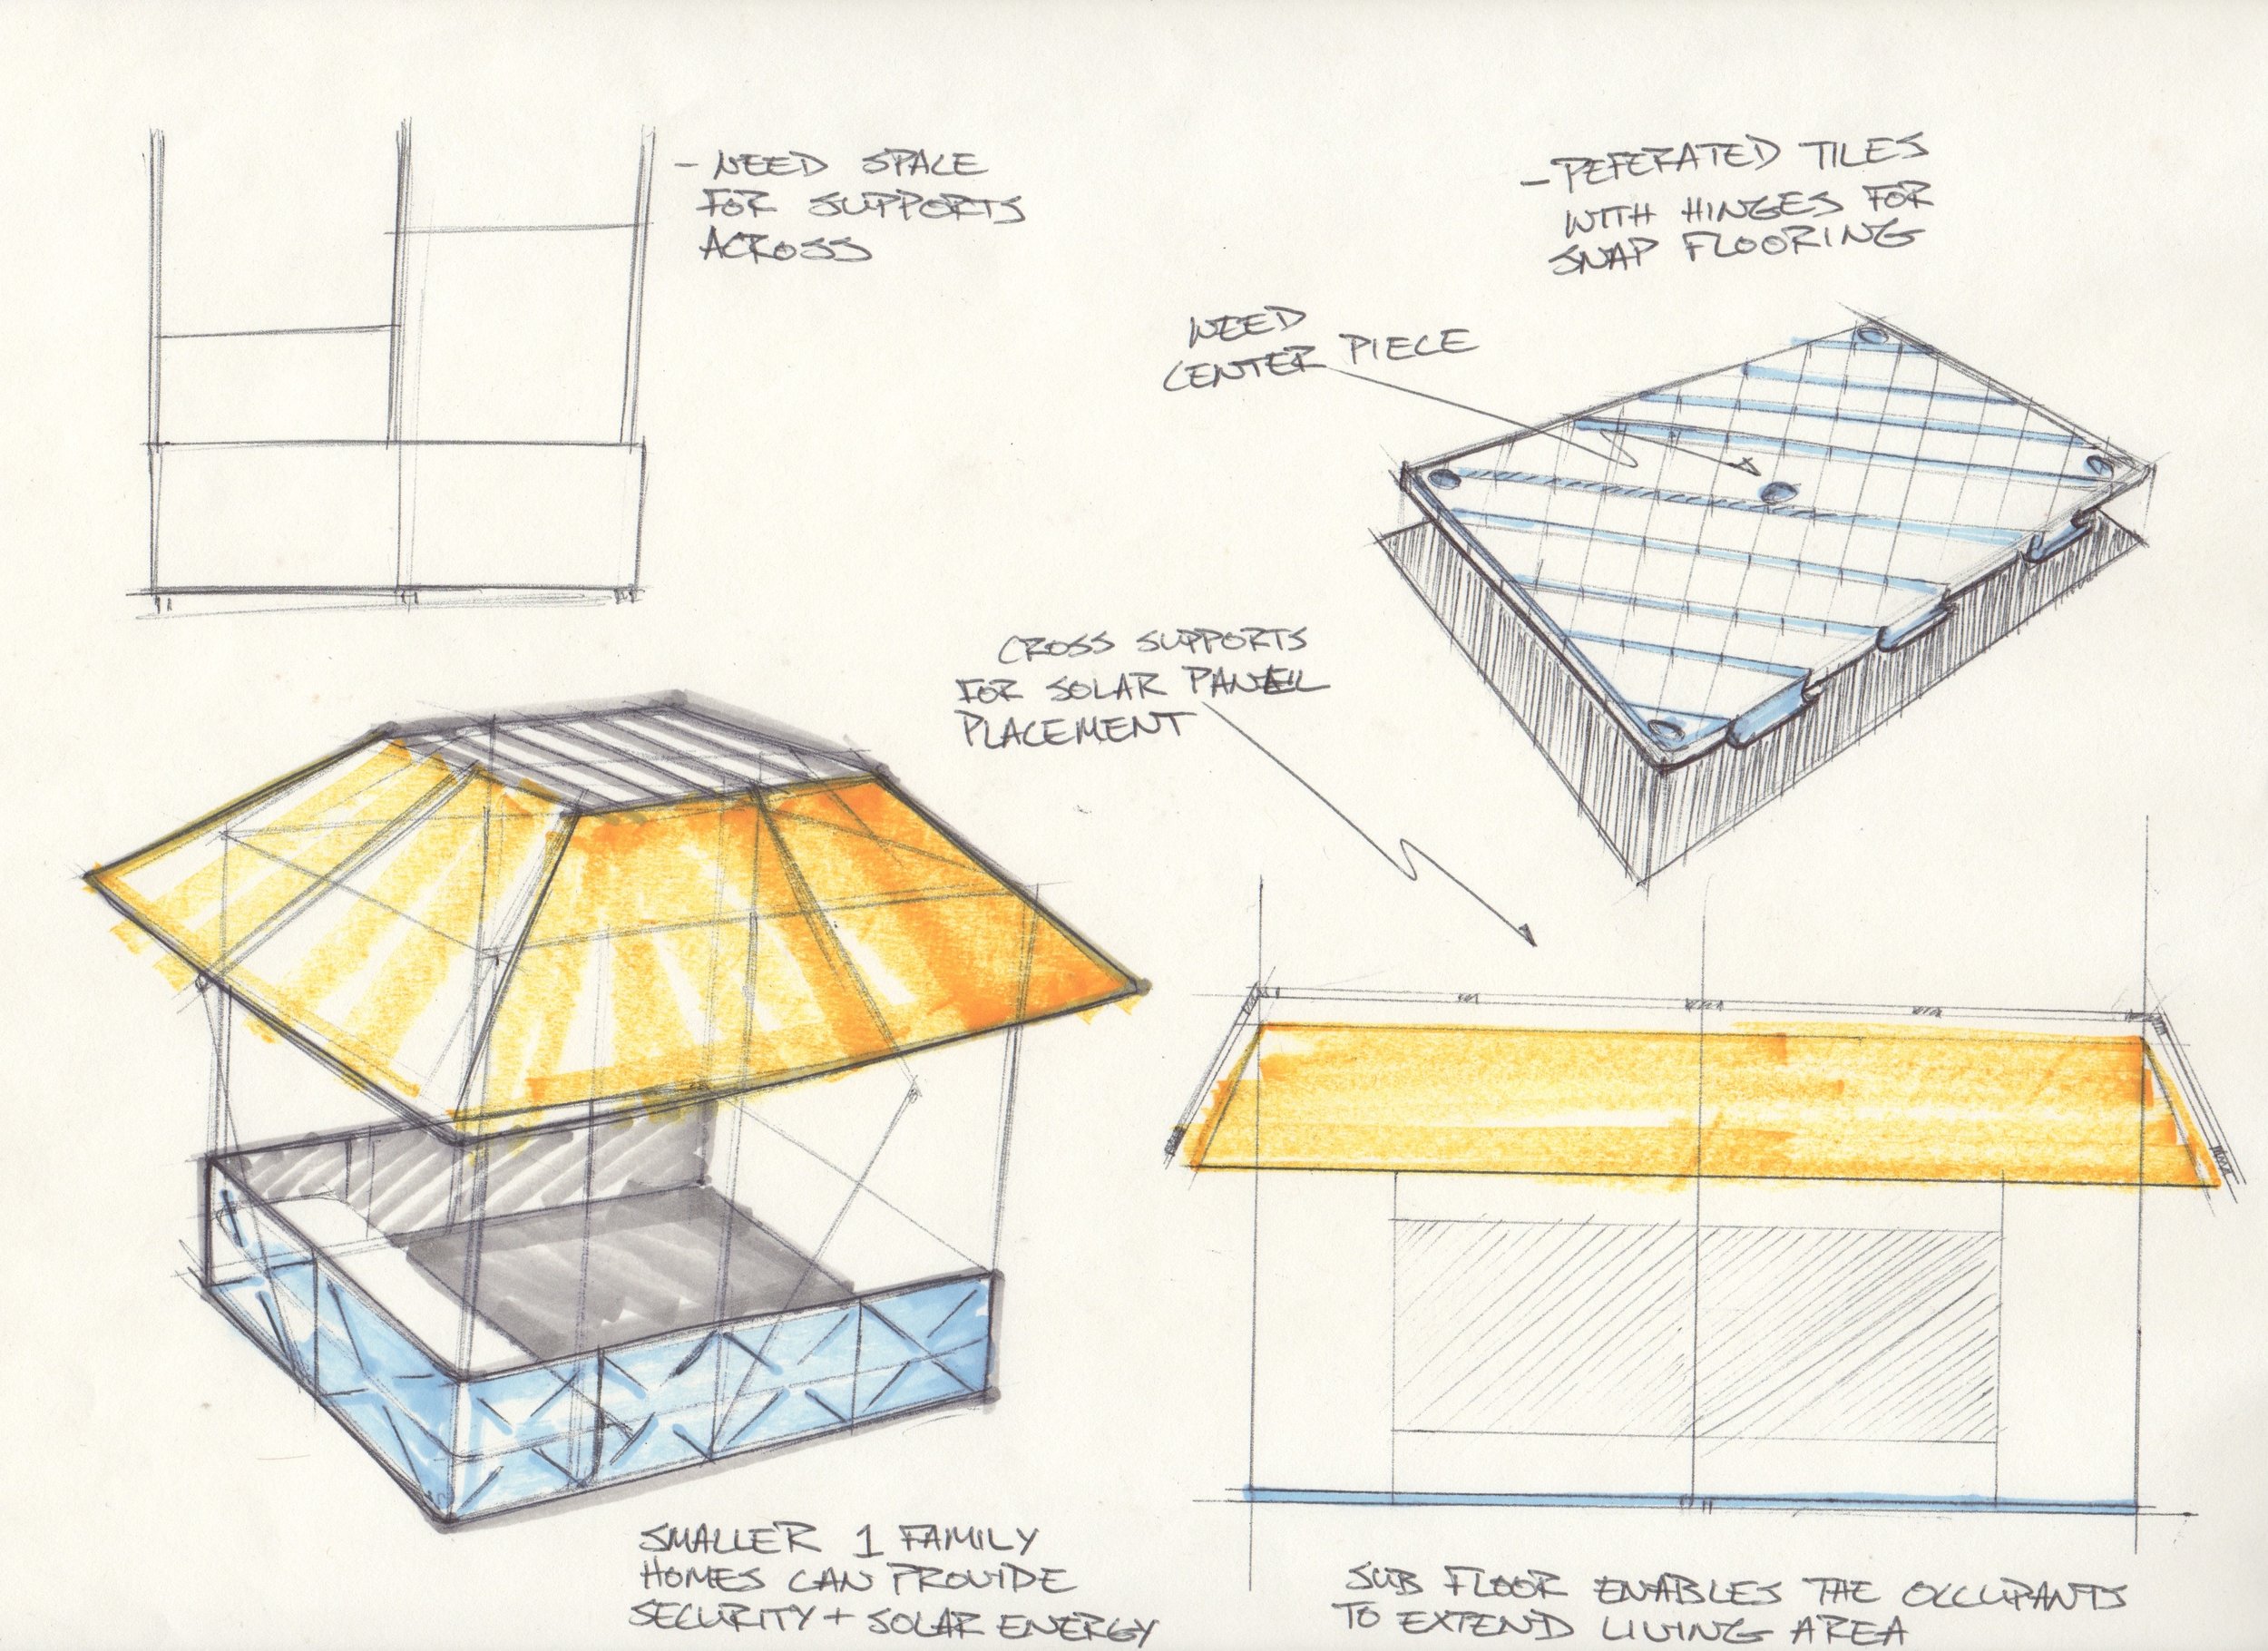 - NEED SPACE
FOR SUPPORTS
ACROSS
- PEFERATED TILES
WITH HINGES FOR
SNAP FLOORING
NEED
CENTER PIECE
CROSS SUPPORTS
FOR SOLAR PANEL
PLACEMENT
SMALLER 1 FAMILY
HOMES CAN PROVIDE
SECURITY + SOLAR ENERGY
SUB FLOOR ENABLES THE OCCUPANTS
TO EXTEND LIVING AREA